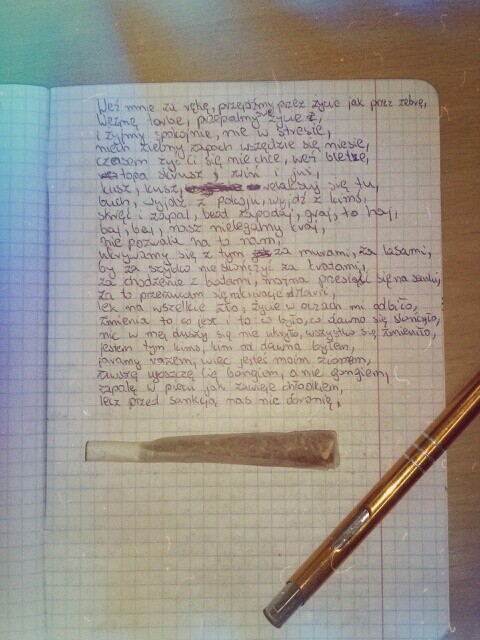 Weź mnie za rękę, przejdźmy przez życie jak przez zebrę,
Weźmę torbę, przepalmy życie,
i żyjmy spokojnie, nie w stresie,
niech zielony zapach wszędzie się niesie,
czasem żyć Ci się nie chce, weź bletkę,
topa skrusz, zwiń i już,
kusz, kusz, relaksuj się tu,
buch, wyjdź z pokoju, wyjdź z kimś,
skręć i zapal, beat zapodaj, graj, to haj,
baj, baj, nasz nielegalny kraj,
nie pozwala na to nam,
ukrywamy się z tym za murami, za lasami,
by za szybko nie skończyć za kratami,
za chodzenie z batami, można przesiąść się na sanki,
za to przerzucam się na
lek na wszelkie zło, życie w oczach mi odbiło,
zmienia to co jest i to co było, co dawno się skończyło,
nic w mej duszy się nie ukryło, wszystko się zmieniło,
jestem tym kimś, kim od dawna byłem,
jaramy razem, więc jesteś moim ziomem,
zawszę ugoszczę Cię bongiem, a nie gongiem,
zapalę w piecu jak zawieje chłodkiem,
lecz przed sankcją nas nic obronię,